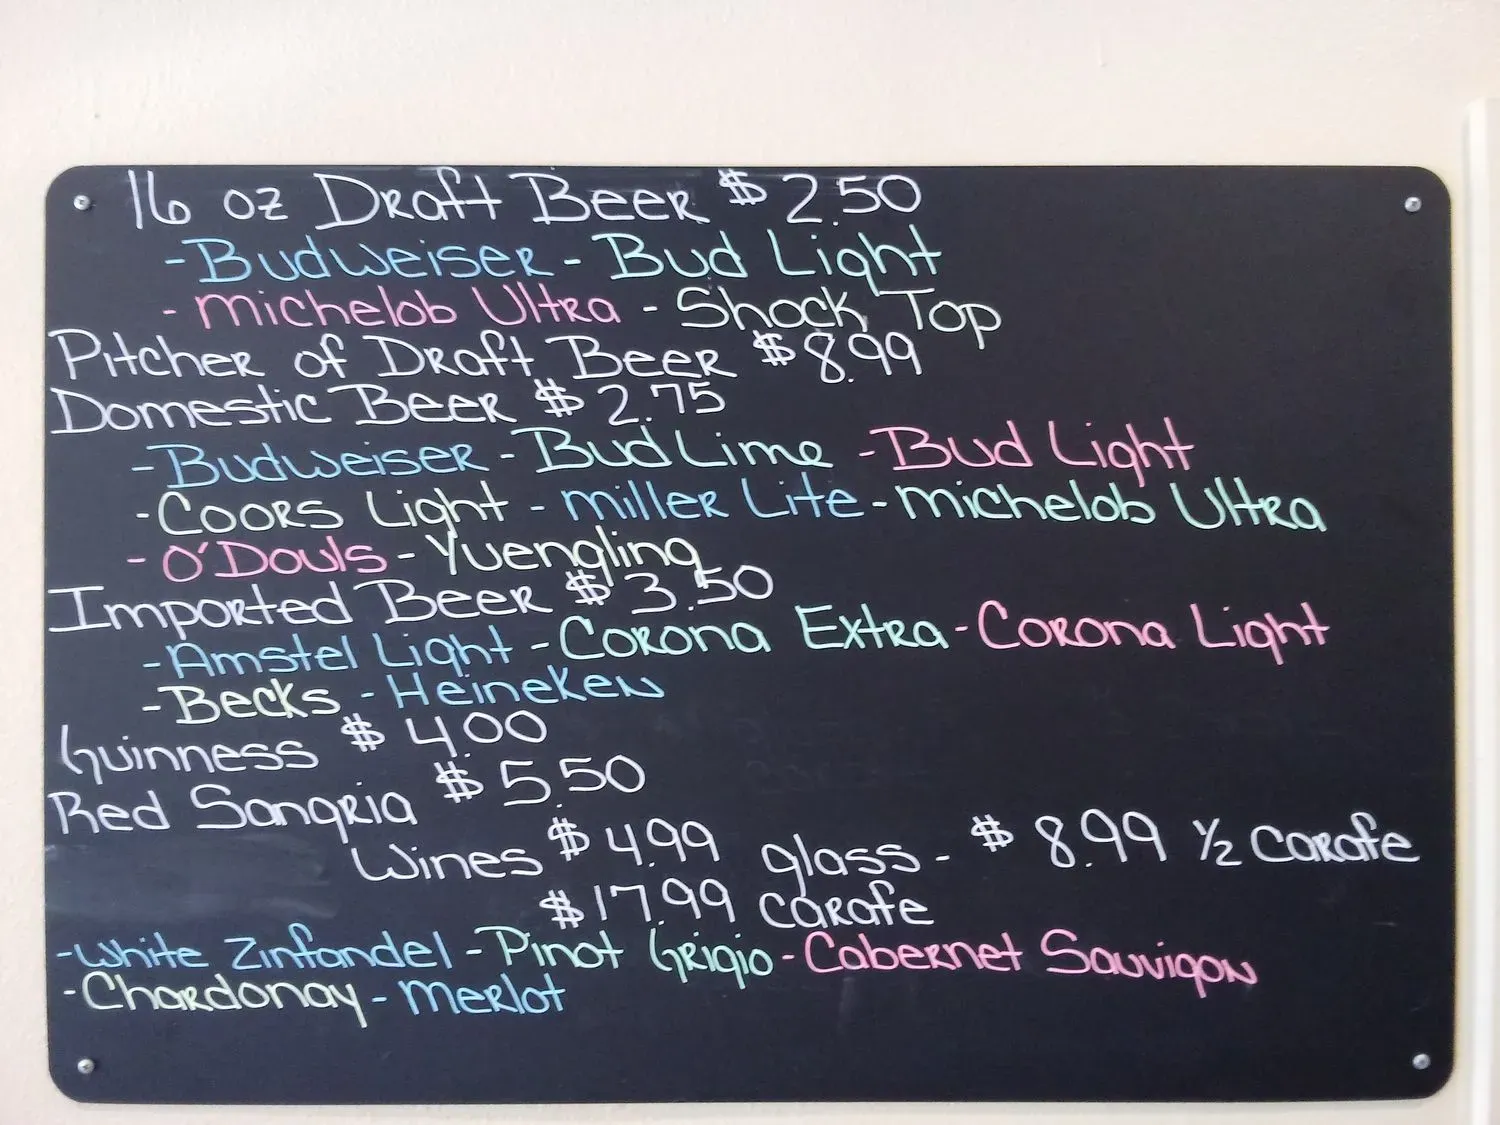 16 oz Draft Beer $2.50
- Budweiser - Bud Light
- Michelob Ultra - Shock Top
Pitcher of Draft Beer $8.99
Domestic Beer $2.75
- Budweiser - Bud Lime - Bud Light
- Coors Light - Miller Lite - Michelob Ultra
- O'Douls - Yuengling
Imported Beer $3.50
- Amstel Light - Corona Extra - Corona Light
- Becks - Heineken
Guinness $4.00
Red Sangria $5.50
Wines $4.99 glass - $8.99 ½ carafe
$17.99 carafe
- White Zinfandel - Pinot Grigio - Cabernet Sauvigon
- Chardonay - Merlot